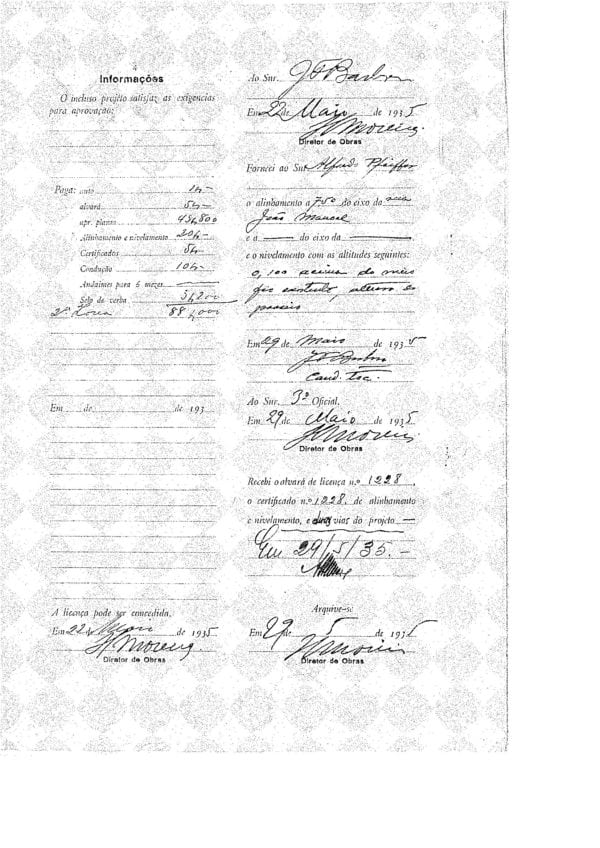 Informações
O incluso projeto satisfaz as exigencias
para aprovação:
Paga: auto
alvará 5$-
apr. planta 45$,800
Alinhamento e nivelamento 20$-
Certificados 5$-
Condução 10$-
Andaimes para 6 mezes
Selo de verba 3$200
88$,000
Em de de 193
A licença pode ser concedida.
Em 22 de Maio de 1935
Moreira
Diretor de Obras
Ao Snr.
Em 22 de Maio de 1935
Moreira
Diretor de Obras
Forneci ao Snr. Alfredo Pfeiffer
o alinhamento a 7,50 do eixo da rua
João Manoel
e a do eixo da
e o nivelamento com as altitudes seguintes:
0,100 acima do meio
fio existente,
passeio
Em 29 de Maio de 1935
Cand. Tec.
Ao Snr. 3º Oficial.
Em 29 de Maio de 1935
Moreira
Diretor de Obras
Recebi o alvará de licença n.o 1228,
o certificado n.o 1228, de alinhamento
e nivelamento, e duas vias do projeto
Em 29/5/35.-
Arquive-se
Em 29 de 5 de 1935
Moreira
Diretor de Obras